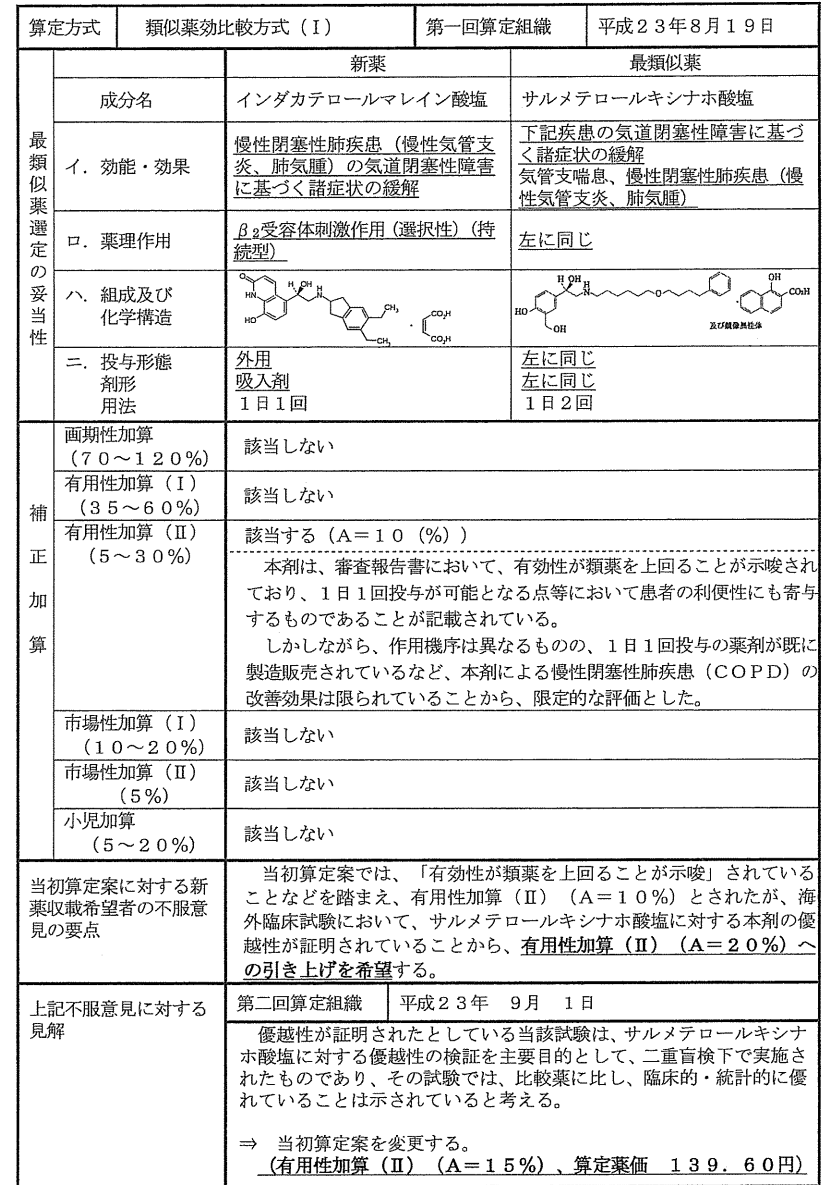 算定方式 類似薬効比較方式（Ⅰ） 第一回算定組織 平成２３年８月１９日
最類似薬選定の妥当性
新薬 最類似薬
成分名 インダカテロールマレイン酸塩 サルメテロールキシナホ酸塩
イ．効能・効果
慢性閉塞性肺疾患（慢性気管支
炎、肺気腫）の気道閉塞性障害
に基づく諸症状の緩解
下記疾患の気道閉塞性障害に基づ
く諸症状の緩解
気管支喘息、慢性閉塞性肺疾患（慢
性気管支炎、肺気腫）
ロ．薬理作用
β₂受容体刺激作用（選択性）（持
続型）
左に同じ
ハ．組成及び
化学構造
O
HN
HO
H
OH
H
N
CH₃
CH₃
・
CO₂H
CO₂H
HO
OH
H
OH
H
N
O
・
OH
CO₂H
及び鏡像異性体
ニ．投与形態
剤形
用法
外用
吸入剤
１日１回
左に同じ
左に同じ
１日２回
補正加算
画期性加算
（７０～１２０％）
該当しない
有用性加算（Ⅰ）
（３５～６０％）
該当しない
有用性加算（Ⅱ）
（５～３０％）
該当する（Ａ＝１０（％））
本剤は、審査報告書において、有効性が類薬を上回ることが示唆され
ており、１日１回投与が可能となる点等において患者の利便性にも寄与
するものであることが記載されている。
しかしながら、作用機序は異なるものの、１日１回投与の薬剤が既に
製造販売されているなど、本剤による慢性閉塞性肺疾患（ＣＯＰＤ）の
改善効果は限られていることから、限定的な評価とした。
市場性加算（Ⅰ）
（１０～２０％）
該当しない
市場性加算（Ⅱ）
（５％）
該当しない
小児加算
（５～２０％）
該当しない
当初算定案に対する新
薬収載希望者の不服意
見の要点
当初算定案では、「有効性が類薬を上回ることが示唆」されている
ことなどを踏まえ、有用性加算（Ⅱ）（Ａ＝１０％）とされたが、海
外臨床試験において、サルメテロールキシナホ酸塩に対する本剤の優
越性が証明されていることから、有用性加算（Ⅱ）（Ａ＝２０％）へ
の引き上げを希望する。
上記不服意見に対する
見解
第二回算定組織 平成２３年　９月　１日
優越性が証明されたとしている当該試験は、サルメテロールキシナ
ホ酸塩に対する優越性の検証を主要目的として、二重盲検下で実施さ
れたものであり、その試験では、比較薬に比し、臨床的・統計的に優
れていることは示されていると考える。
⇒　当初算定案を変更する。
（有用性加算（Ⅱ）（Ａ＝１５％）、算定薬価　１３９．６０円）